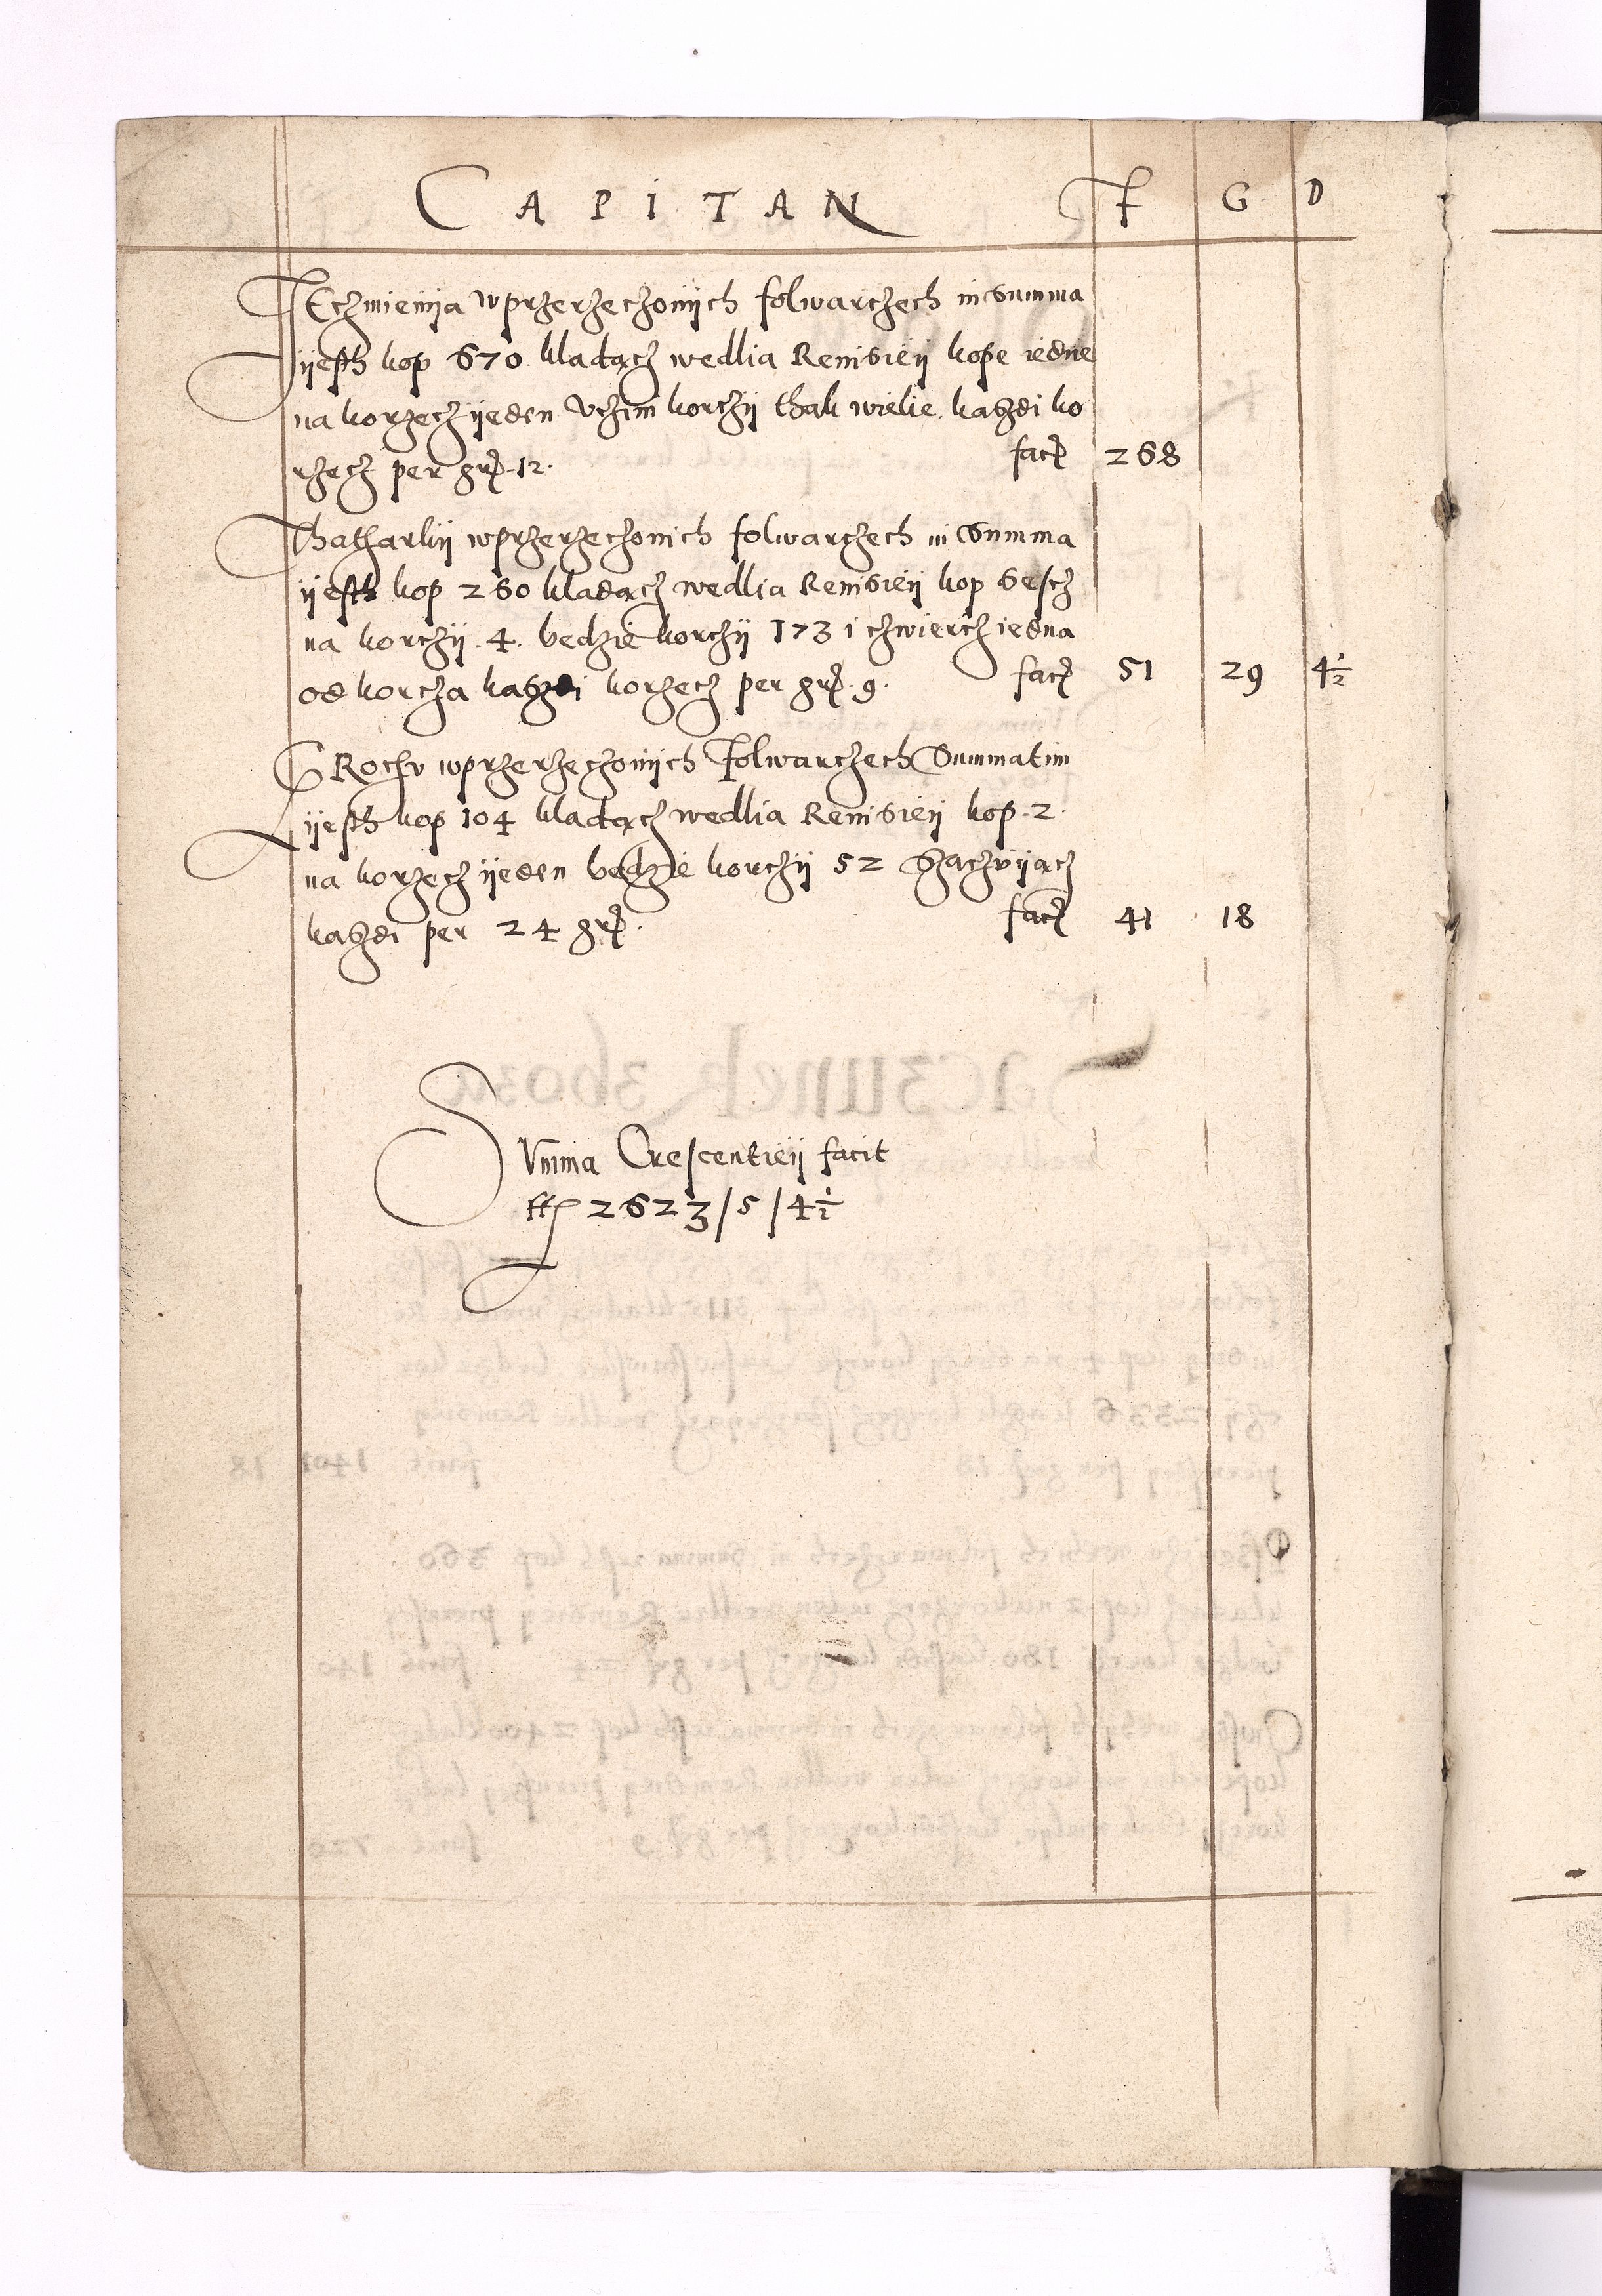 CAPITAN F G D
JEczmienija wprzerzeczonijch folwarczech in Summa
ijesth kop 670 kladącz wedlia Renisieij kope iedne
na korzecz ijeden Vczini korczij thak wielie kaszdi ko
rzecz per grs. 12. facit 268
Thatharkij wprzerzeczonich folwarczech in Summa
ijesth kop 260 kladącz wedlia Renisieij kop Sescz
na korczij .4. bedzie korczij 173 i czwiercz iedna
od korcza kaszdi korzecz per grs. 9. facit 51 29 4½
GRochv wprzerzeczonijch Folwarczech Summatim
ijesth kop 104 kladącz wedlia Renisieij kop .2.
na korzecz ijeden bedzie korczij 52 Szaczvijącz
kaszdi per 24 grs. facit 41 18
SVmma Crescentieij facit
2623/5/4½